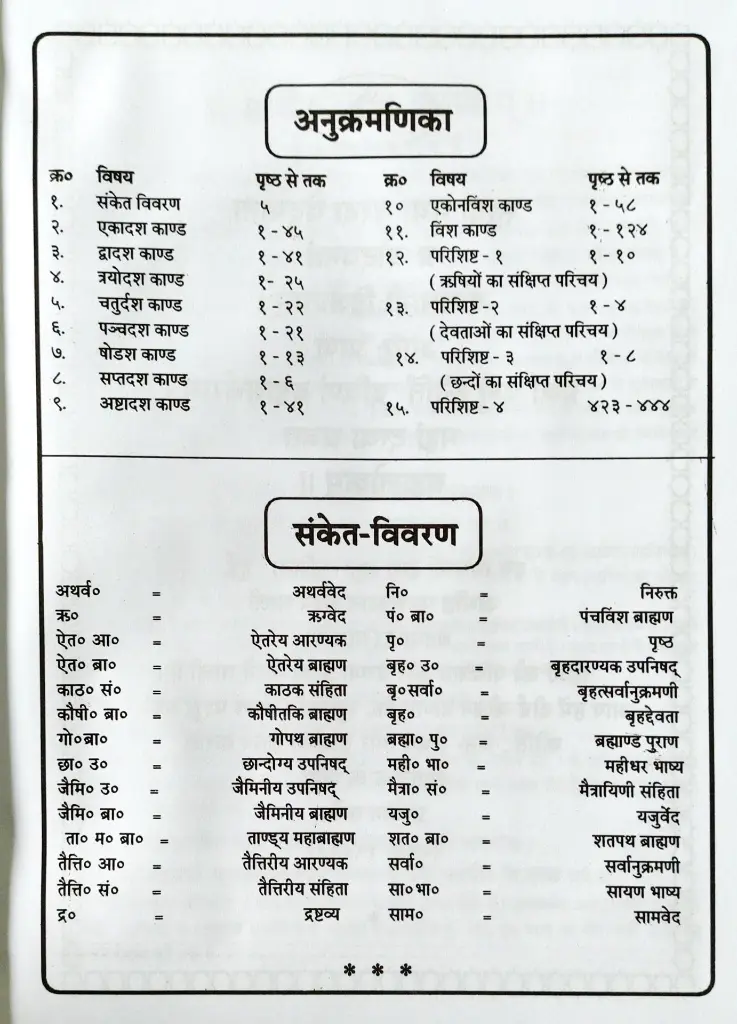 अनुक्रमणिका
क्र० विषय पृष्ठ से तक
१. संकेत विवरण ५
२. एकादश काण्ड १ - ४५
३. द्वादश काण्ड १ - ४१
४. त्रयोदश काण्ड १- २५
५. चतुर्दश काण्ड १ - २२
६. पञ्चदश काण्ड १ - २१
७. षोडश काण्ड १ - १३
८. सप्तदश काण्ड १ - ६
९. अष्टादश काण्ड १ - ४१
क्र० विषय पृष्ठ से तक
१० एकोनविंश काण्ड १ - ५८
११. विंश काण्ड १ - १२४
१२. परिशिष्ट - १ १ - १०
( ऋषियों का संक्षिप्त परिचय )
१३. परिशिष्ट -२ १ - ४
( देवताओं का संक्षिप्त परिचय )
१४. परिशिष्ट - ३ १ - ८
( छन्दों का संक्षिप्त परिचय )
१५. परिशिष्ट - ४ ४२३ - ४४४
संकेत-विवरण
अथर्व० = अथर्ववेद
ऋ० = ऋग्वेद
ऐत० आ० = ऐतरेय आरण्यक
ऐत० ब्रा० = ऐतरेय ब्राह्मण
काठ० सं० = काठक संहिता
कौषी० ब्रा० = कौषीतकि ब्राह्मण
गो०ब्रा० = गोपथ ब्राह्मण
छा० उ० = छान्दोग्य उपनिषद्
जैमि० उ० = जैमिनीय उपनिषद्
जैमि० ब्रा० = जैमिनीय ब्राह्मण
ता० म० ब्रा० = ताण्ड्य महाब्राह्मण
तैत्ति० आ० = तैत्तिरीय आरण्यक
तैत्ति० सं० = तैत्तिरीय संहिता
द्र० = द्रष्टव्य
नि० = निरुक्त
पं० ब्रा० = पंचविंश ब्राह्मण
पृ० = पृष्ठ
बृह० उ० = बृहदारण्यक उपनिषद्
बृ०सर्वा० = बृहत्सर्वानुक्रमणी
बृह० = बृहद्देवता
ब्रह्मा० पु० = ब्रह्माण्ड पुराण
मही० भा० = महीधर भाष्य
मैत्रा० सं० = मैत्रायिणी संहिता
यजु० = यजुर्वेद
शत० ब्रा० = शतपथ ब्राह्मण
सर्वा० = सर्वानुक्रमणी
सा०भा० = सायण भाष्य
साम० = सामवेद
* * *